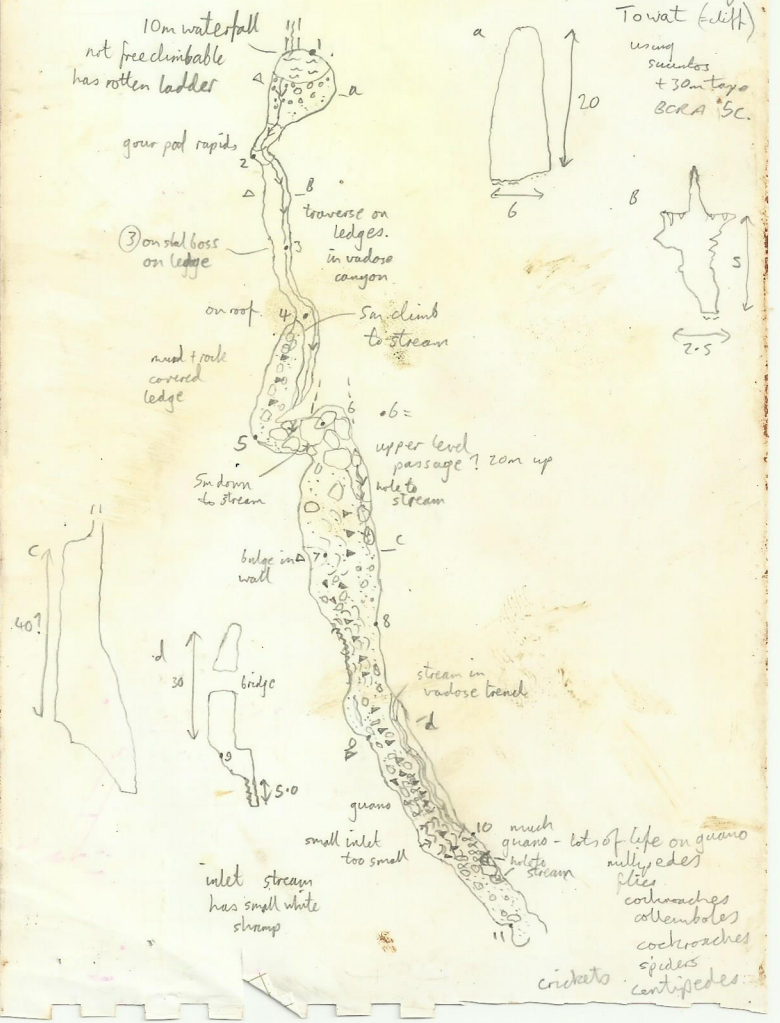 10m waterfall
not freeclimbable
has rotten ladder
1
a
gour pool rapids
2
B
traverse on
ledges.
in vadose
canyon
③ on stal boss
on ledge
3
on roof
4
5m climb
to stream
mud + rock
covered
ledge
5
6
•6=
upper level
passage? 20m up
5m down
to stream
hole to
stream
C
bulge in
wall
7
8
stream in
vadose trench
d
9
guano
small inlet
too small
10
much
guano - lots of life on guano
hole to
stream
millipedes
flies
cockroaches
collemboles
cockroaches
spiders
centipedes
crickets
11
inlet stream
has small white
shrimp
Towat (=cliff)
using
suuntos
+ 30m tape
BCRA 5c.
a
20
6
B
5
2.5
C
40?
d
30
bridge
9
5.0